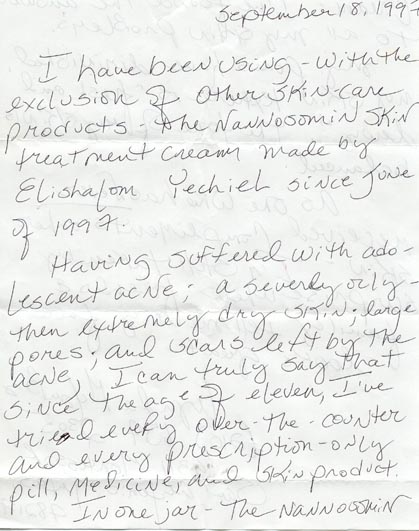 September 18, 1997
I have been using - with the
exclusion of other skin-care
products - the Nannosomin skin
treatment cream made by
Elishalom Yechiel since June
of 1997.
Having suffered with ado-
lescent acne; a severly oily -
then extremely dry skin; large
pores; and scars left by the
acne, I can truly say that
since the age of eleven, I've
tried every over-the-counter
and every prescription-only
pill, medicine, and skin product.
In one jar - The Nannosomin